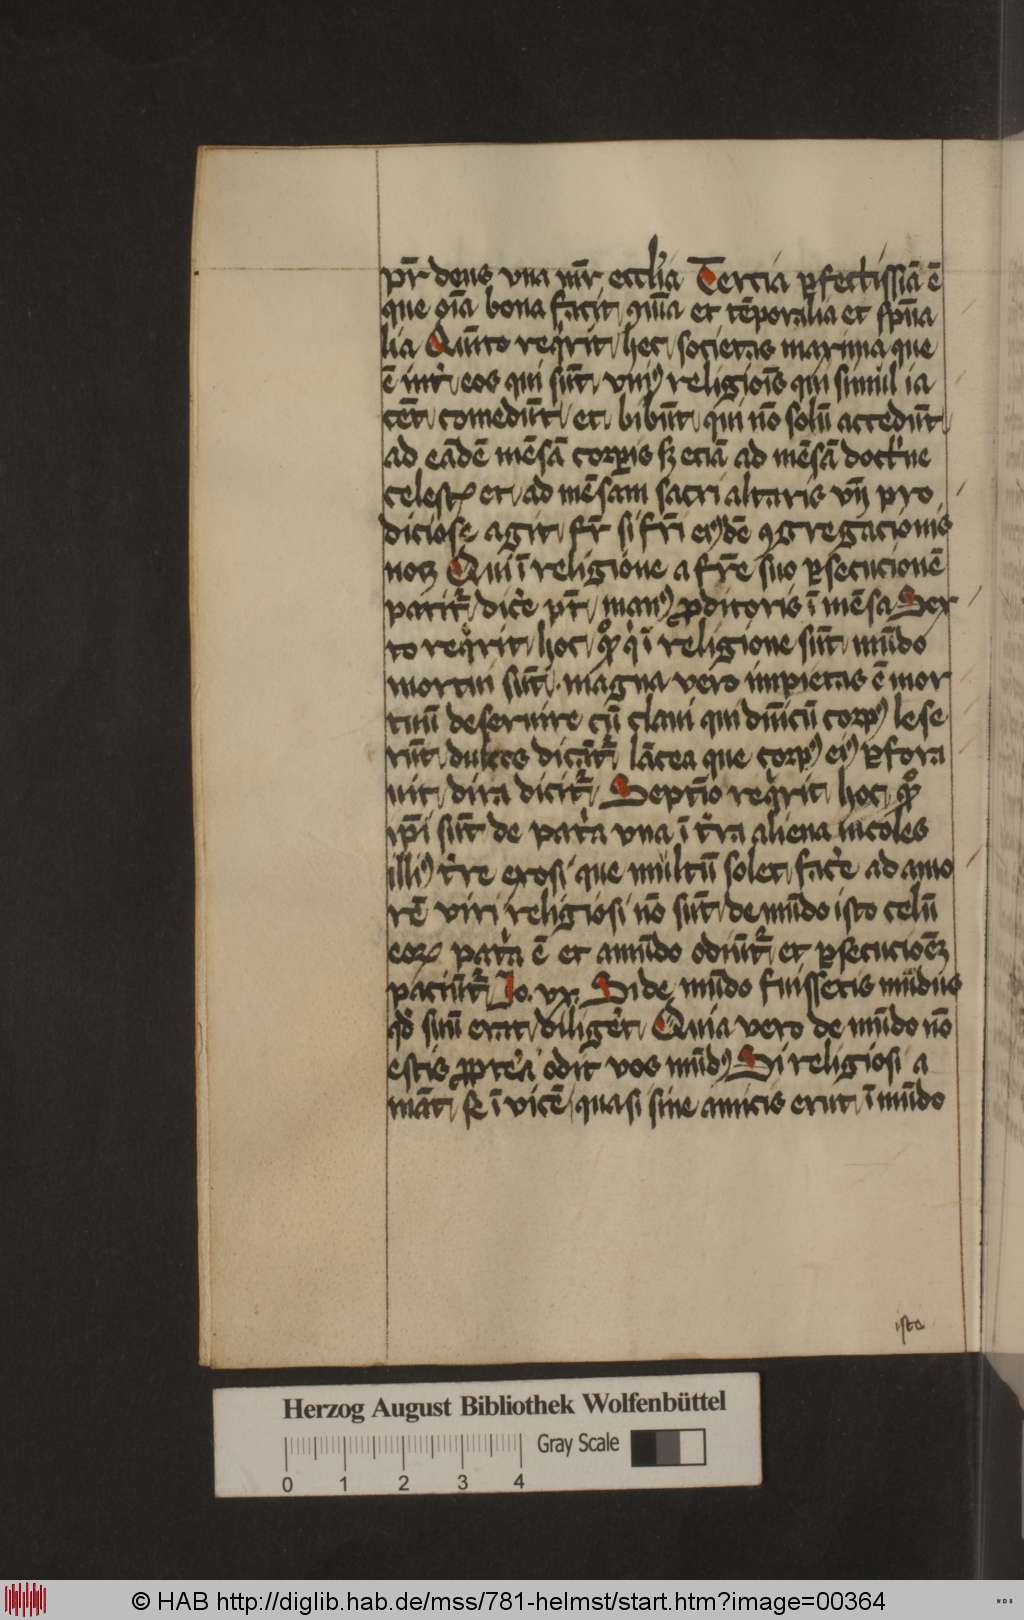 pr̄ deus vna mr̄ eccl'ia Tercia ꝑfectissīa ē
que oīa bona facit qm̄ia et tēporalia et sp̄ua
lia Quīto req̇rit hec societas maxima que
ē int' eos qui sūt vniꝰ religiois̄ qui simul ia
cēt comedūt et bibūt qui nō solū accedūt
ad eādē mēsā corꝑis sꝫ eciā ad mēsā doct'ne
celestꝭ et ad mēsam sacri altaris vn̄ pro
diciose agit fr̄ si fr̄i eiꝰdē ꝯgregacionis
noꝫ Qui ī religione a fr̄e suo ꝑsecucionē
patitᷣ dic'e pt̄ manꝰ ꝓditoris ī mēsa Sex
to req̇rit hoc qꝫ q̇ ī religione sūt mūdo
mortui sūt magna vero impietas ē mor
tuū deseruire cū claui qui dn̄icū corpꝰ lese
rūt dulces dicūtᷣ lācea que corpꝰ eiꝰ ꝑfora
uit dira dicitᷣ Septīo req̇rit hoc qꝫ
ip̄i sūt de pat'a vna ī t'ra aliena incoles
illiꝰ t're exosi que multū solet fac'e ad amo
rē viri religiosi nō sūt de mūdo isto celū
eoꝝ pat'a ē et a mūdo odiūtᷣ et ꝑsecucioēꝫ
paciūtᷣ Jo. xv. Si de mūdo fuissetis mūdus
qd̄ suū erat diliger̄t Quia vero de mūdo nō
estis ꝓpt'ea odit vos mūdꝰ Si religiosi a
māt se ī vicē quasi sine amicis erūt ī mūdo
iste
Herzog August Bibliothek Wolfenbüttel
Gray Scale
0 1 2 3 4
© HAB http://diglib.hab.de/mss/781-helmst/start.htm?image=00364